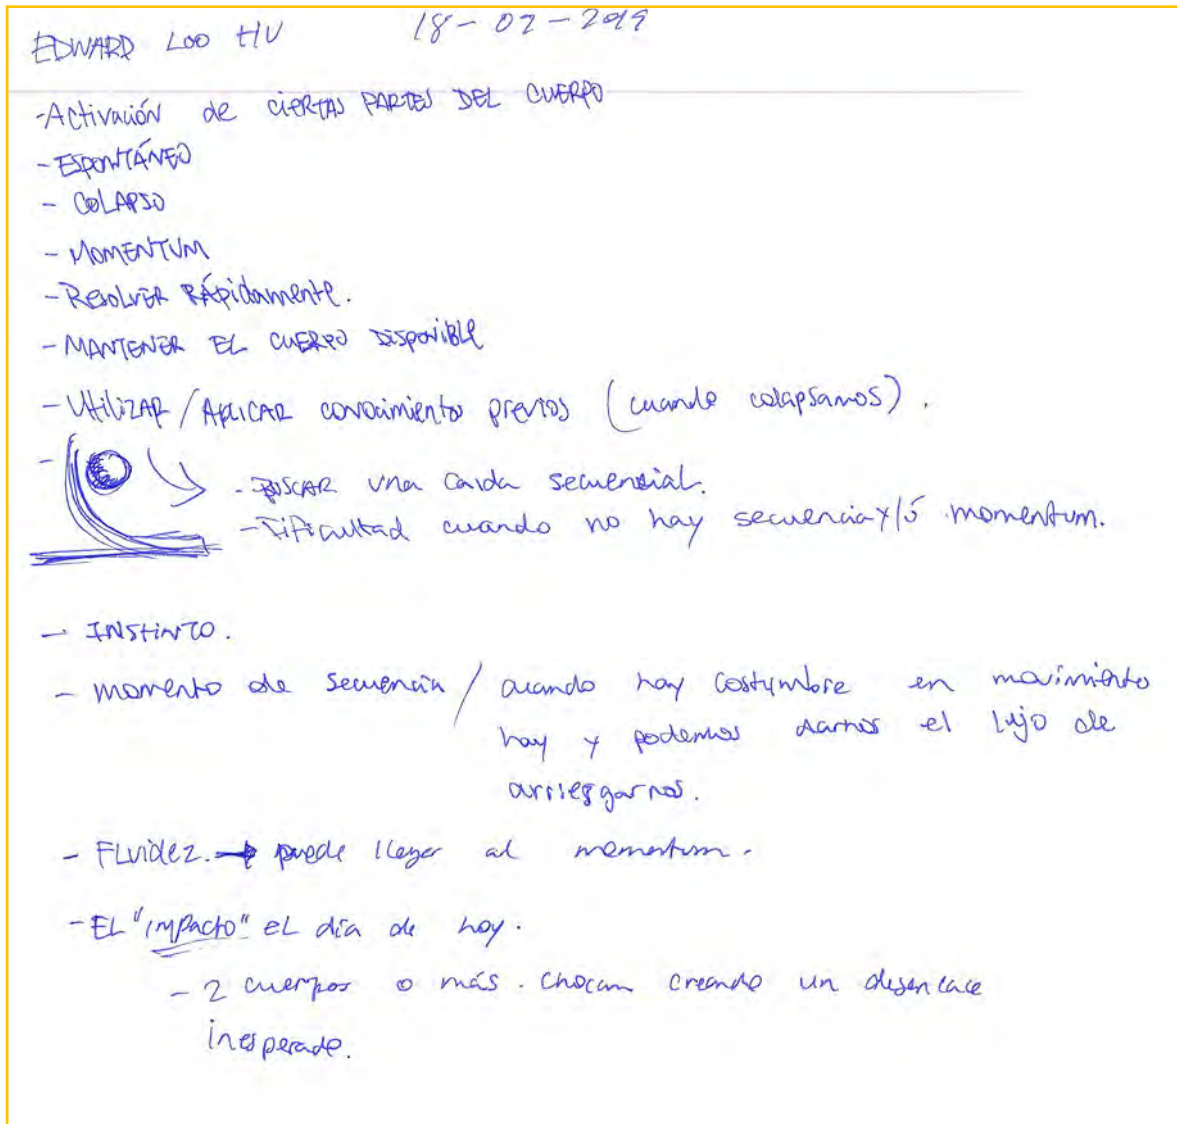 EDWARD LOO HU 18-02-2019
-Activación de CIERTAS PARTES DEL CUERPO
- ESPONTÁNEO
- COLAPSO
- MOMENTUM
- Resolver RÁpidamente.
- MANTENER EL CUERPO DISPONIBLE
- UtilizAR / APLICAR conocimientos previos (cuando colapsamos).
-
- BUSCAR una caida secuensial.
- Dificultad cuando no hay secuencia y/ó momentum.
- INStiNTO.
- momento de secuencia / cuando hay costumbre en movimiento
hay y podemos darnos el lujo de
arriesgarnos.
- FLuidez. → puede llegar al momentum.
- EL "impacto" el día de hoy.
- 2 cuerpos o más. chocan creando un desenlace
inesperado.